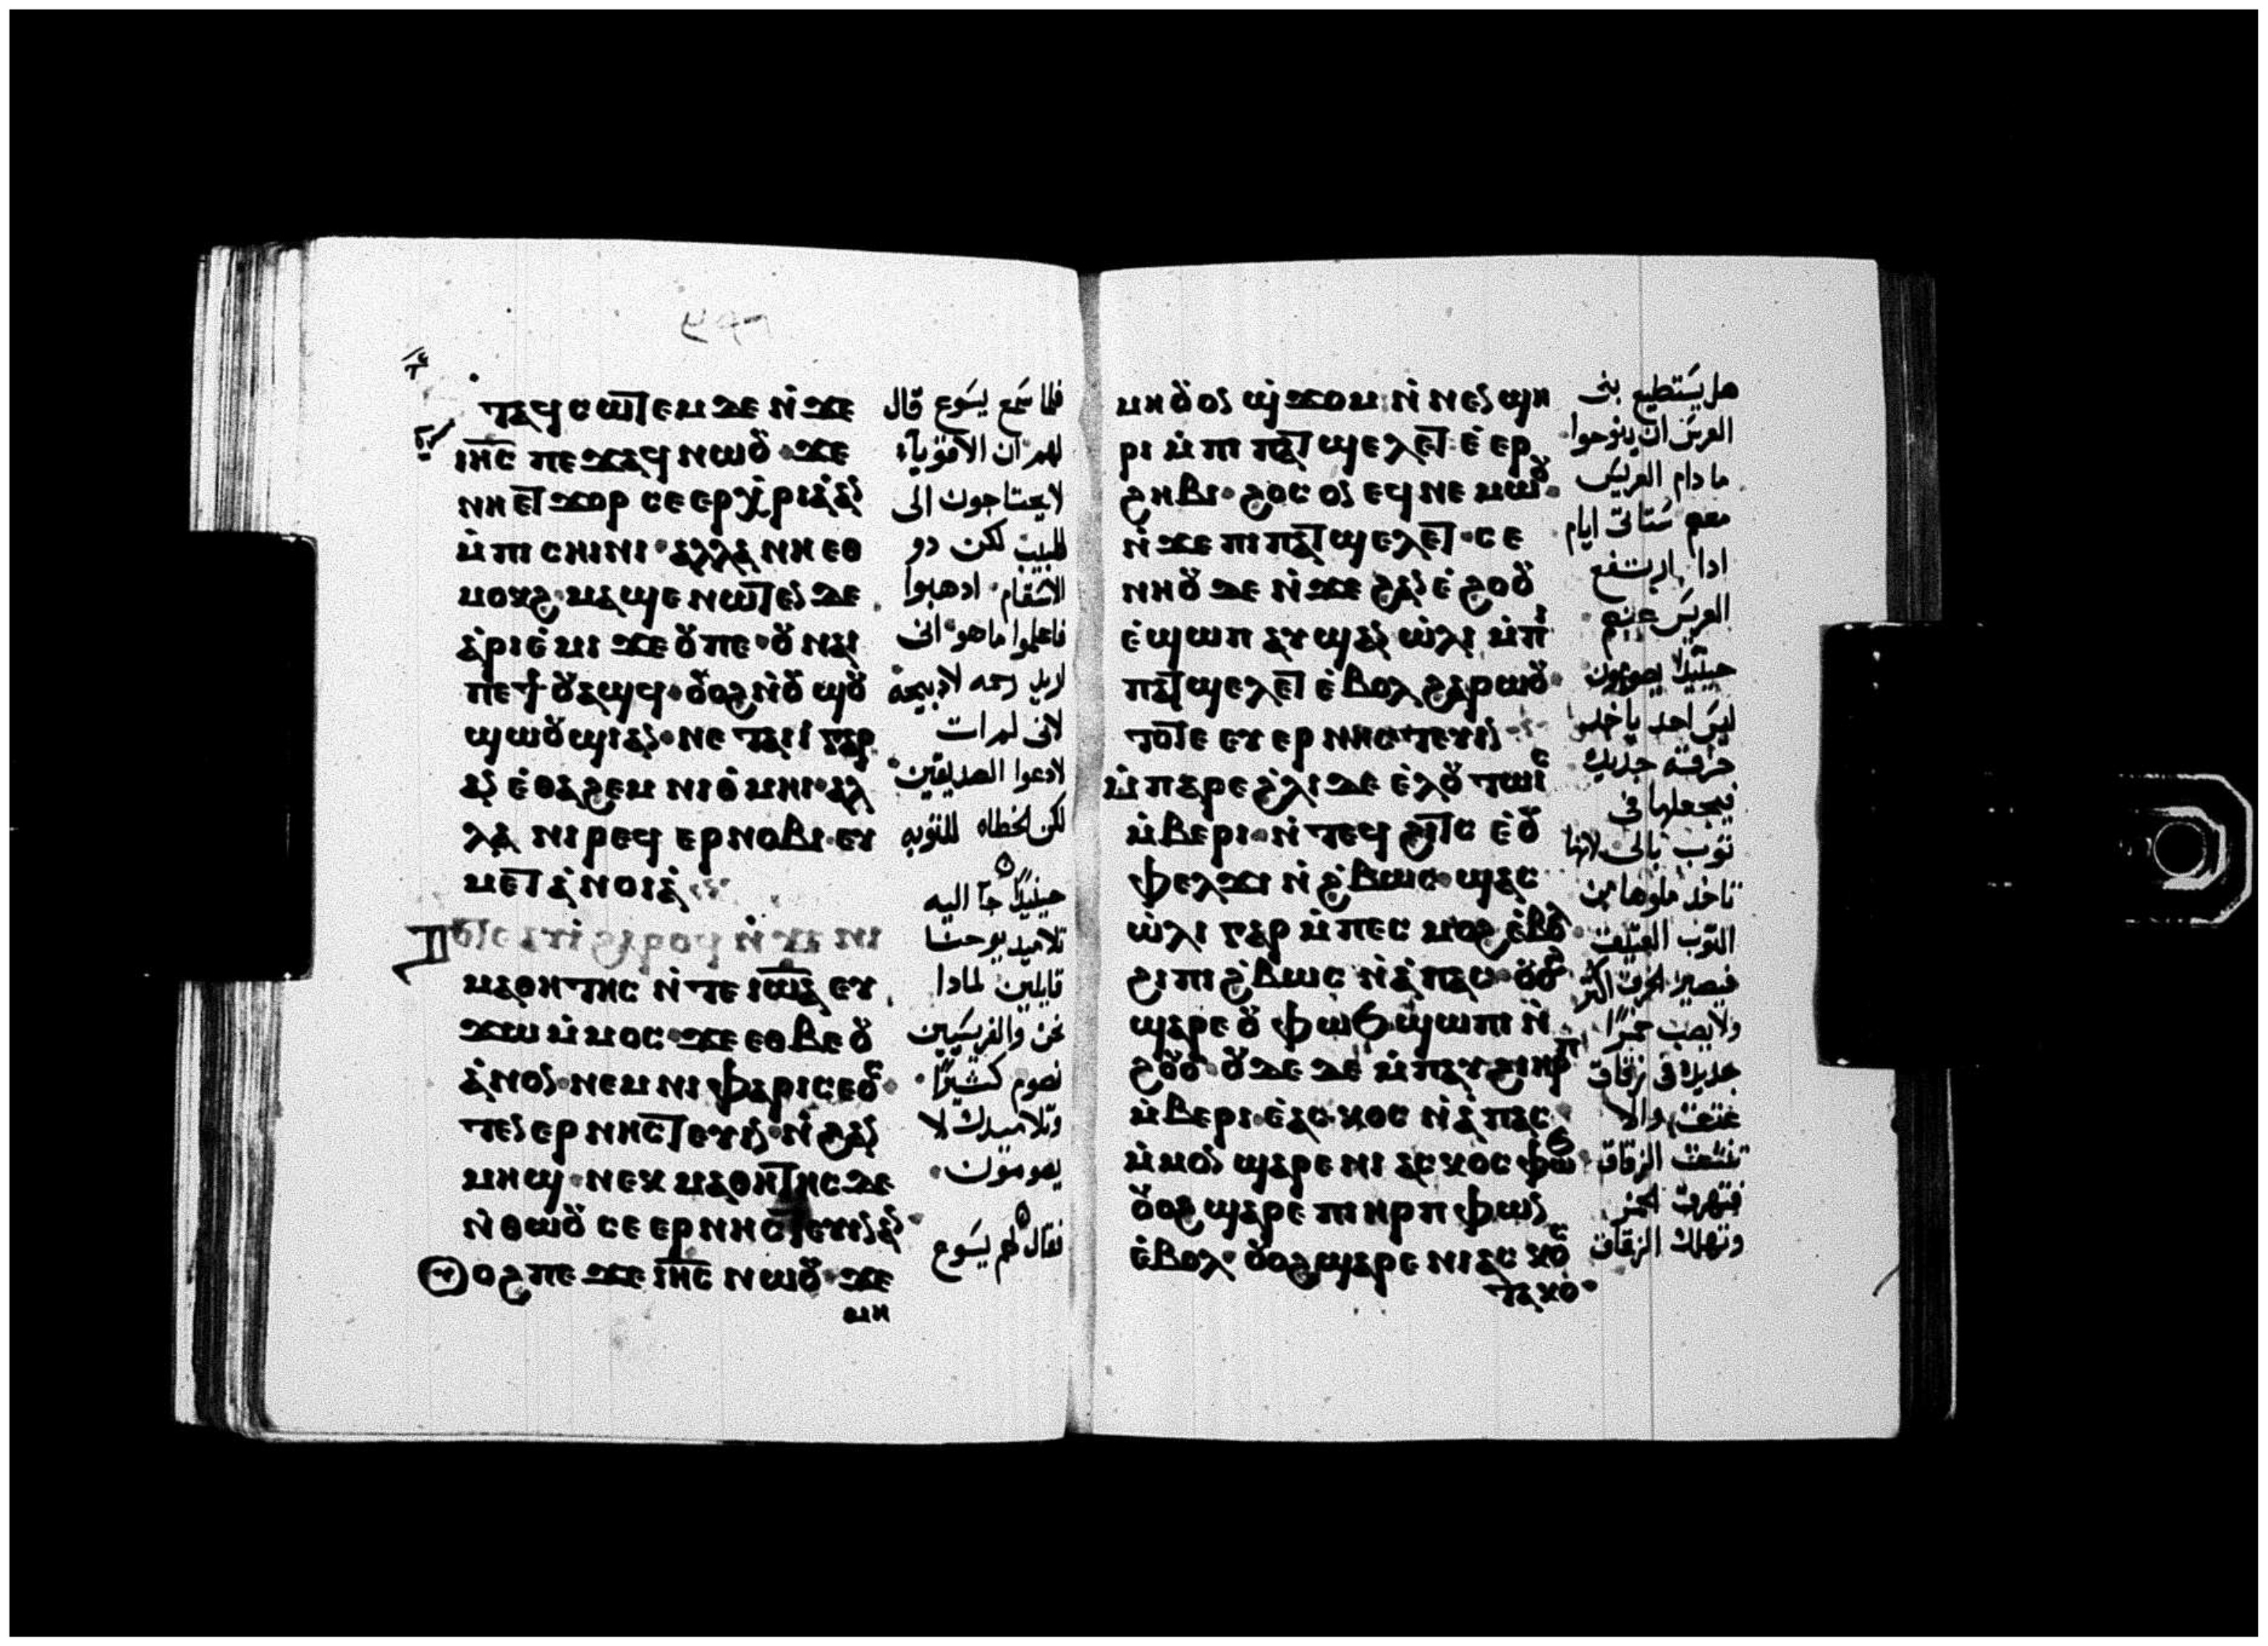 ⲧⲁϥⲥⲱⲧⲉⲙ ⲇⲉ ⲛ̀ϫⲉ
ⲓⲏ̅ⲥ̅ ⲡⲉϫⲁϥ ⲛⲱⲟⲩ · ϫⲉ
ⲛⲏⲉⲧϫⲟⲣ ⲥⲉⲉⲣⲭ̀ⲣⲓⲁ̀ⲁⲛ
ⲙ̀ⲡⲓⲥⲏⲓⲛⲓ · ⲁⲗⲗⲁ ⲛⲏⲉⲑ
ⲙⲟⲕϩ · ⲙⲁϣⲉ ⲛⲱⲧⲉⲛ ⲇⲉ
ⲁ̀ⲣⲓⲉ̀ⲙⲓ ϫⲉ ⲟⲩⲡⲉ · ⲟⲩⲛⲁⲓ
ⲡⲉϯⲟⲩⲁϣϥ · ⲟⲩⲟϩ ⲛ̀ⲟⲩϣⲟⲩ
ϣⲱⲟⲩϣⲓ ⲁⲛ · ⲛⲉ ⲧⲁⲓⲓ̀ ⲅⲁⲣ
ⲁⲛ ⲉ̀ⲑⲁϩⲉⲙ ⲛⲓⲑ̀ⲙⲏⲓ · ⲁⲗ
ⲗⲁ ⲛⲓⲣⲉϥⲉⲣⲛⲟⲃⲓ · ⲉⲩ
ⲙⲉⲧⲁ̀ⲛⲟⲓⲁ̀
ⲙⲁⲑⲏⲧⲏⲥ ⲛ̀ⲧⲉ ⲓⲱⲁ ⲉⲩ
ϫⲱ ⲙ̀ⲙⲟⲥ · ϫⲉ ⲉⲑⲃⲉ ⲟⲩ
ⲁ̀ⲛⲟⲛ · ⲛⲉⲙ ⲛⲓⲫⲁⲣⲓⲥⲉⲟⲥ
ⲧⲉⲛⲉⲣⲛⲏⲥⲧⲉⲩⲓⲛ · ⲛ̀ϩⲁⲛ
ⲙⲏϣ · ⲛⲉⲕⲙⲁⲑⲏⲧⲏⲥ ⲇⲉ
ⲛ̀ⲑⲱⲟⲩ ⲥⲉⲉⲣⲛⲏⲥⲧⲉⲩⲓⲛ ⲁⲛ ·
ⲟϩ ⲡⲉϫⲉ ⲓⲏ̅ⲥ̅ ⲛⲱⲟⲩ · ϫⲉ
ⲙⲏ
فلما سَمع يسَوع قال
لهم ان الاقويآء
لا يحتاجون الى
الاسقام · ادهبوا
فاعلموا ما هو انى
اريد رحمه لا دبيحة
لانى لم ات
لادعوا الصديقين
لكن الخطاه للتوبه
حينيدًا جآ اليه
تلاميد يوحنا
قايلين لمادا
نحن والفريسَيين
نصوم كثيرًا ·
وتلاميدك لا
يصومون ·
فقال لهم يسَوع
ⲙⲏ ⲟⲩⲟⲛ ϣ̀ϫⲟⲙ ⲛ̀ⲛⲉⲛϣⲏ
ⲣⲓ ⲙ̀ⲡⲓⲡⲁⲧϣⲉⲗⲉⲧ ⲉ̀ⲉⲣ
ϩⲏⲃⲓ · ϩⲟⲥ ⲟⲛ ⲉϥⲛⲉⲙⲱⲟⲩ ·
ⲛ̀ϫⲉ ⲡⲓⲡⲁⲧϣⲉⲗⲉⲧ · ⲥⲉ
ⲛⲏⲟⲩ ⲇⲉ ⲛ̀ϫⲉ ϩⲁⲛⲉ̀ϩⲟⲟⲩ
ⲉ̀ϣⲱⲡ ⲁⲩϣⲁⲛⲱ̀ⲗⲓ ⲙ̀ⲡⲓ
ⲡⲁⲧϣⲉⲗⲉⲧ ⲉ̀ⲃⲟⲗ ϩⲁⲣⲱⲟⲩ ·
ⲧⲟⲧⲉ ⲉⲩⲉⲣⲛⲏⲥⲧⲉⲩⲓⲛ
ⲙ̀ⲡⲁⲣⲉ ϩ̀ⲗⲓ ⲇⲉ ⲉ̀ⲗⲟⲩⲧⲱⲓⲥ
ⲙ̀ⲃⲉⲣⲓ · ⲛ̀ⲧⲉϥϩⲓⲧⲥ ⲉ̀ⲟⲩ
ⲫⲉⲗϫⲓ ⲛ̀ϩ̀ⲃⲱⲥ · ϣⲁⲥ
ⲱ̀ⲗⲓ ⲅⲁⲣ ⲙ̀ⲡⲉⲥⲙⲟϩ ⲉ̀ⲃⲟⲗ
ϩⲓ ⲡⲓϩ̀ⲃⲱⲥ ⲛ̀ⲁ̀ⲡⲁⲥ · ⲟⲩⲟϩ
ϣⲁⲣⲉ ⲟⲩⲫⲱϧ ϣⲱⲡⲓ ⲛ̀
ϩⲟⲩⲟ̀ · ⲟⲩⲇⲉ ⲇⲉ ⲙ̀ⲡⲁⲩϩⲓ ⲏⲣⲡ
ⲙ̀ⲃⲉⲣⲓ · ⲉ̀ⲁⲥⲕⲟⲥ ⲛ̀ⲁ̀ⲡⲁⲥ ·
ⲙ̀ⲙⲟⲛ ϣⲁⲣⲉ ⲛⲓⲁⲥⲕⲟⲥ ⲫⲱϧ ·
ⲟⲩⲟϩ ϣⲁⲣⲉ ⲡⲓⲏⲣⲡ ⲫⲱⲛ
ⲉ̀ⲃⲟⲗ · ⲟⲩⲟϩ ϣⲁⲣⲉ ⲛⲓⲁⲥⲕⲟⲥ
ⲧⲁⲕⲟ ·
هل يسَتطيع بنى
العريس ان ينوحوا ·
ما دام العريسَ
معهم سَتاتى ايام
ادا ارتفع
العريسَ عنهم
حينيدًا يصومون
ليسَ احد ياخد
خرقة جديدة
فيجعلها فى
توب بالى لانها
تاخد ملوها من
التوب العتيق
فيصير الخرق اكتر
ولا يصب خمرًا
جديدة فى زقاق
عتيقة والا
تنشق الزقاق
فتهرق الخمر
وتهلك الزقاق